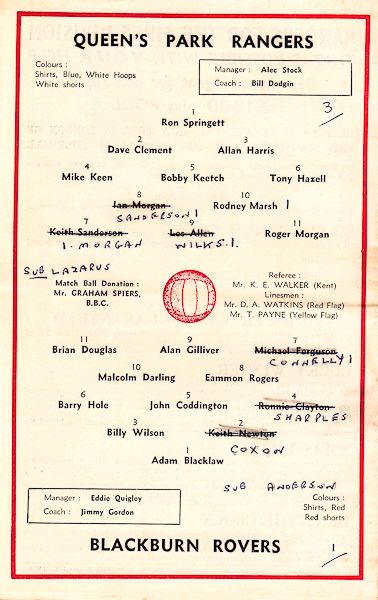 QUEEN'S PARK RANGERS
Colours :
Shirts, Blue, White Hoops
White shorts
Manager : Alec Stock
Coach : Bill Dodgin
3
1
Ron Springett
2 3
Dave Clement Allan Harris
4 5 6
Mike Keen Bobby Keetch Tony Hazell
8 10
Ian Morgan Rodney Marsh 1
SANDERSON 1
7 9 11
Keith Sanderson Les Allen Roger Morgan
I. MORGAN WILKS. 1.
SUB LAZARUS
Match Ball Donation :
Mr. GRAHAM SPIERS,
B.B.C.
Referee :
Mr. K. E. WALKER (Kent)
Linesmen :
Mr. D. A. WATKINS (Red Flag)
Mr. T. PAYNE (Yellow Flag)
11 9 7
Brian Douglas Alan Gilliver Michael Ferguson
CONNELLY 1
10 8
Malcolm Darling Eammon Rogers
6 5 4
Barry Hole John Coddington Ronnie Clayton
SHARPLES
3 2
Billy Wilson Keith Newton
COXON
1
Adam Blacklaw
SUB ANDERSON
Manager : Eddie Quigley
Coach : Jimmy Gordon
Colours :
Shirts, Red
Red shorts
BLACKBURN ROVERS
1